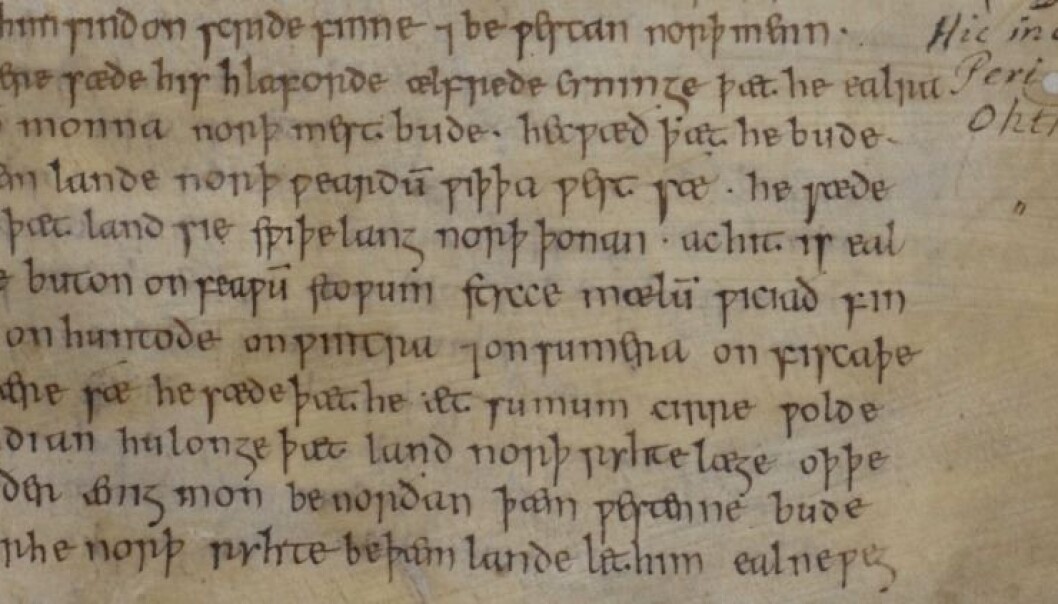 him sindon scride finne ⁊ be ƿestan norþmenn · Hic in
ere sæde his hlaforde ælfrede cyninge þæt he ealra Peri
monna norþ mest bude. he cƿæd þæt he bude. Oht
lande norþ ƿeardū ƿiþþa ƿest sæ . he sæde
þæt land sie sƿiþe lang norþ þonan · ac hit is eal
buton on feaƿū stoƿum stycce mælū ƿiciad fin
on huntode on ƿintra ⁊ on sumera on fiscaþe
ere sæ he sæde þæt he æt sumum cirre ƿolde
dian hu longe þæt land norþ ryhte læge oþþe
der ænig mon be nordan þæm ƿestenne bude
r he norþ ryhte be þæm lande let him ealne ƿeg